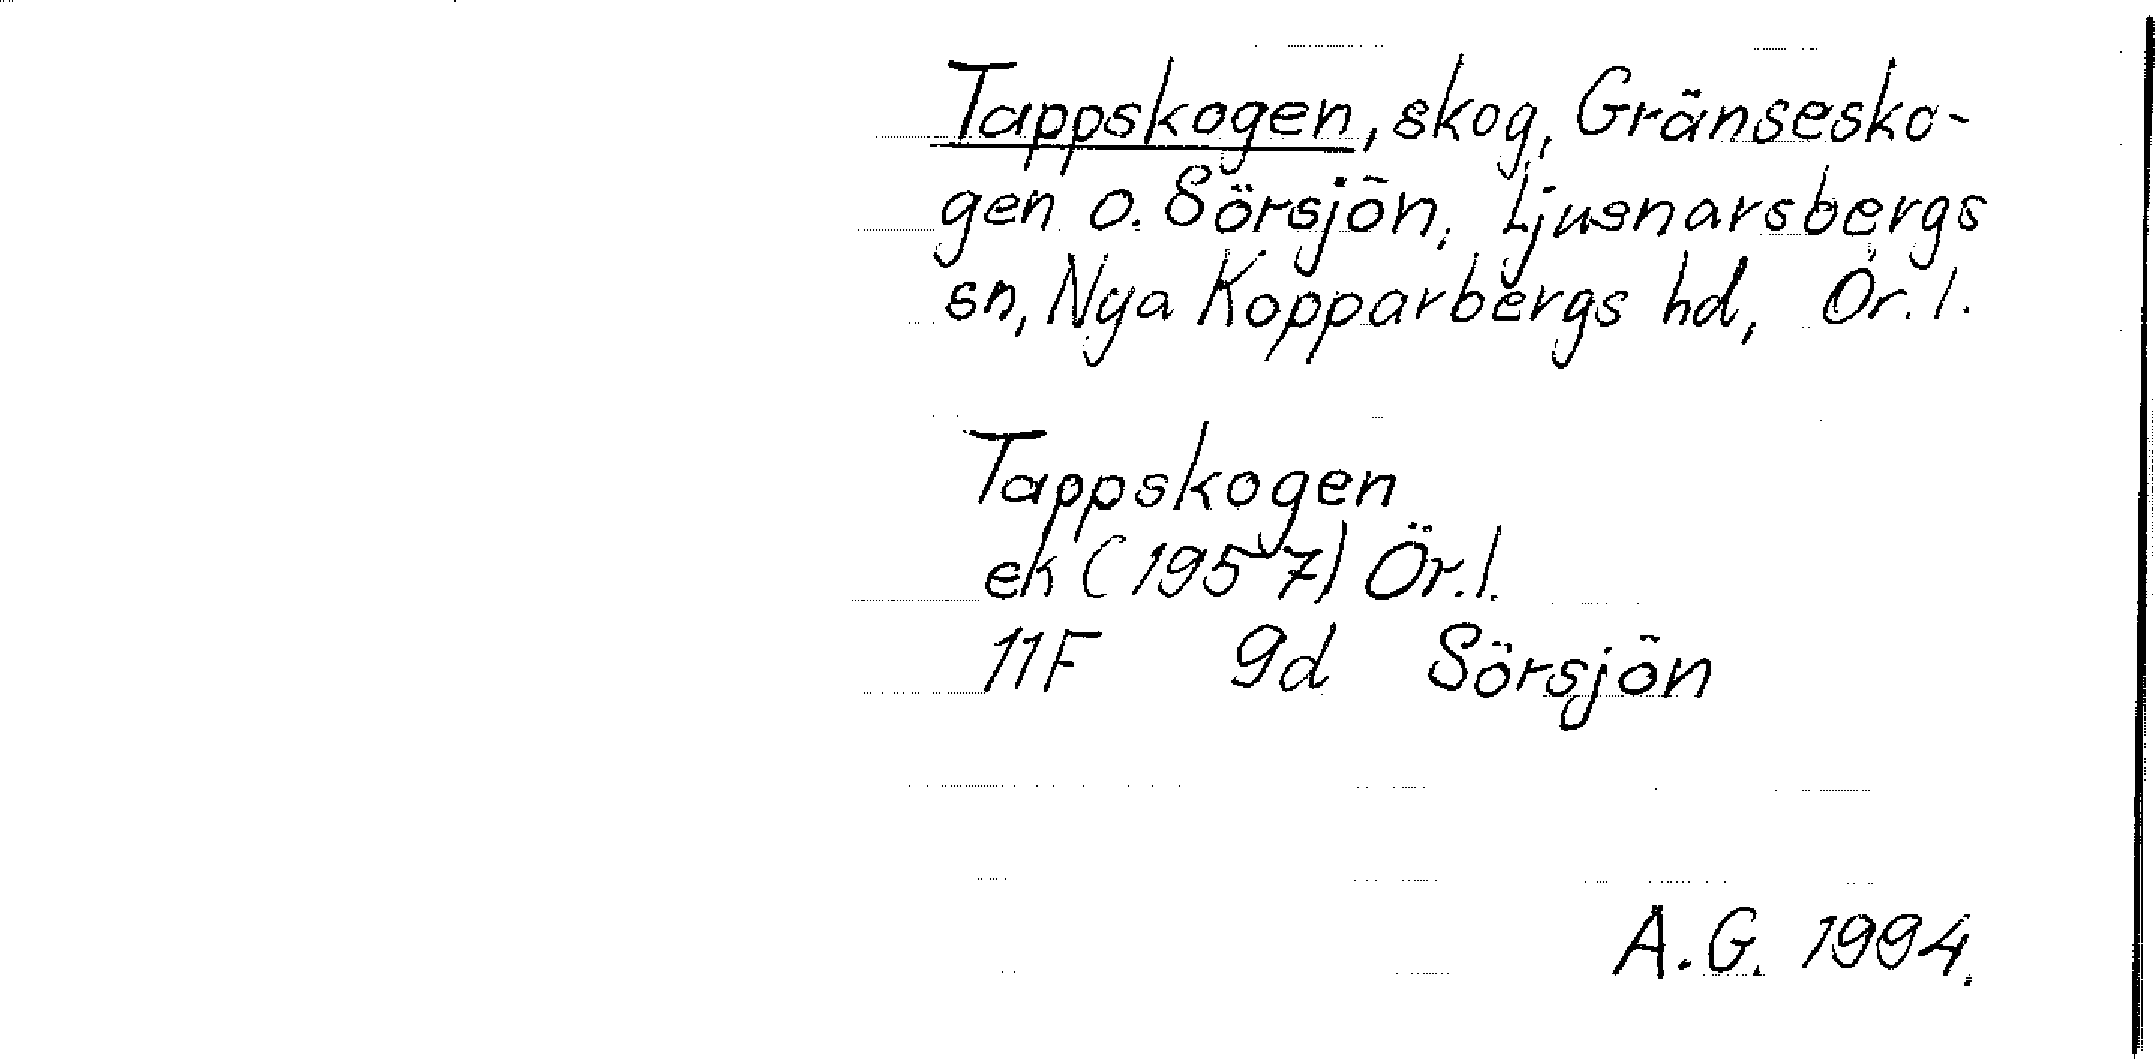 Tappskogen, skog, Gränsesko-
gen o. Sörsjön, Ljusnarsbergs
sn, Nya Kopparbergs hd, Ör. l.
Tappskogen
ek (1957) Ör. l.
11F 9d Sörsjön
Ä.G. 1994.